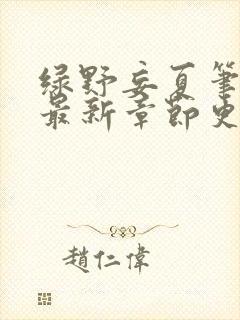 绿野妄夏笔
最新章节史
趙仁偉